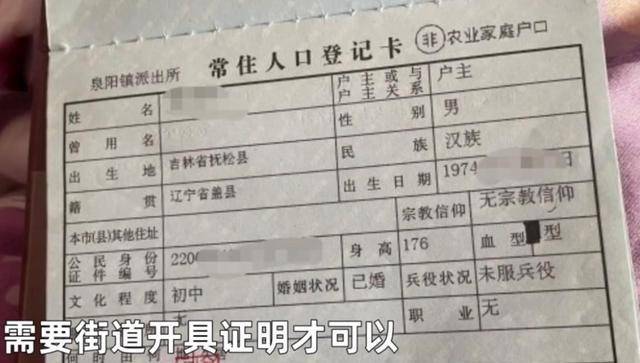 泉阳镇派出所 常住人口登记卡 非农业家庭户口
姓名 户主或与户主关系 户主
曾用名 性别 男
出生地 吉林省抚松县 民族 汉族
籍贯 辽宁省盖县 出生日期 1974
本市(县)其他住址 宗教信仰 无宗教信仰
公民身份证件编号 2200 身高 176 血型 型
文化程度 初中 婚姻状况 已婚 兵役状况 未服兵役
无 职业 无
需要街道开具证明才可以